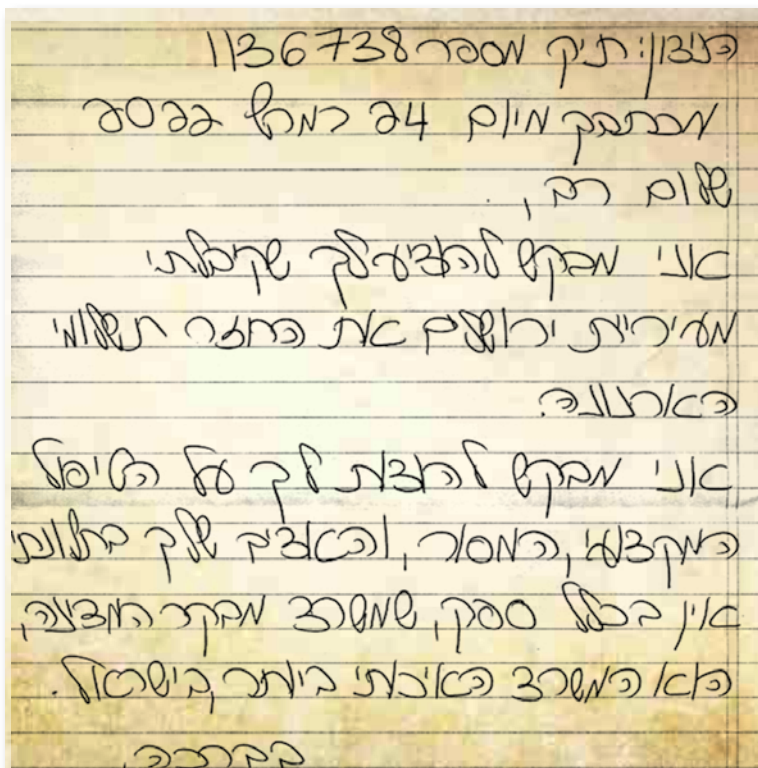 הנידון: תיק מספר 1136738
מכתבך מיום 24 במרץ 2022
שלום רב,
אני מבקש להודיע לך שקיבלתי
מעיריית ירושלים את החזר תשלומי
הארנונה.
אני מבקש להודות לך על הטיפול
המקצועי, המסור, והאדיב שלך בתלונתי
אין בכלל ספק, שמשרד מבקר המדינה,
הוא המשרד האיכותי ביותר בישראל.
בברכה,